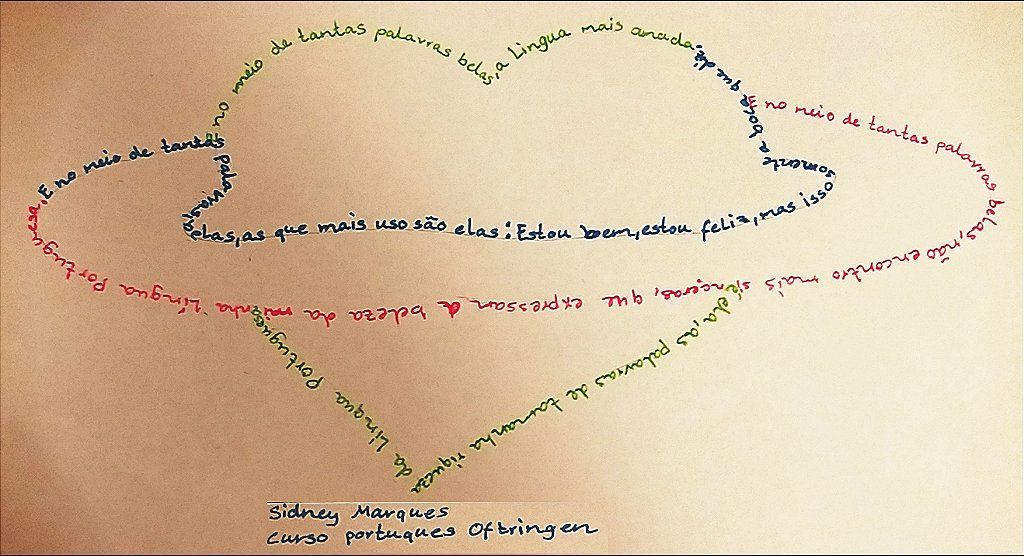 E no meio de tantas palavras belas, a Lingua mais amada.
só ela, as palavras de tamanha riqueza
da Língua Portugues
E no meio de tantas palavras belas, as que mais uso são elas: Estou bem, estou feliz, mas isso somente a boca que diz
E no meio de tantas palavras belas, não encontro mais sinceras, que expressan a beleza da minha Língua Portuguesa.
Sidney Marques
Curso portuques Oftringen